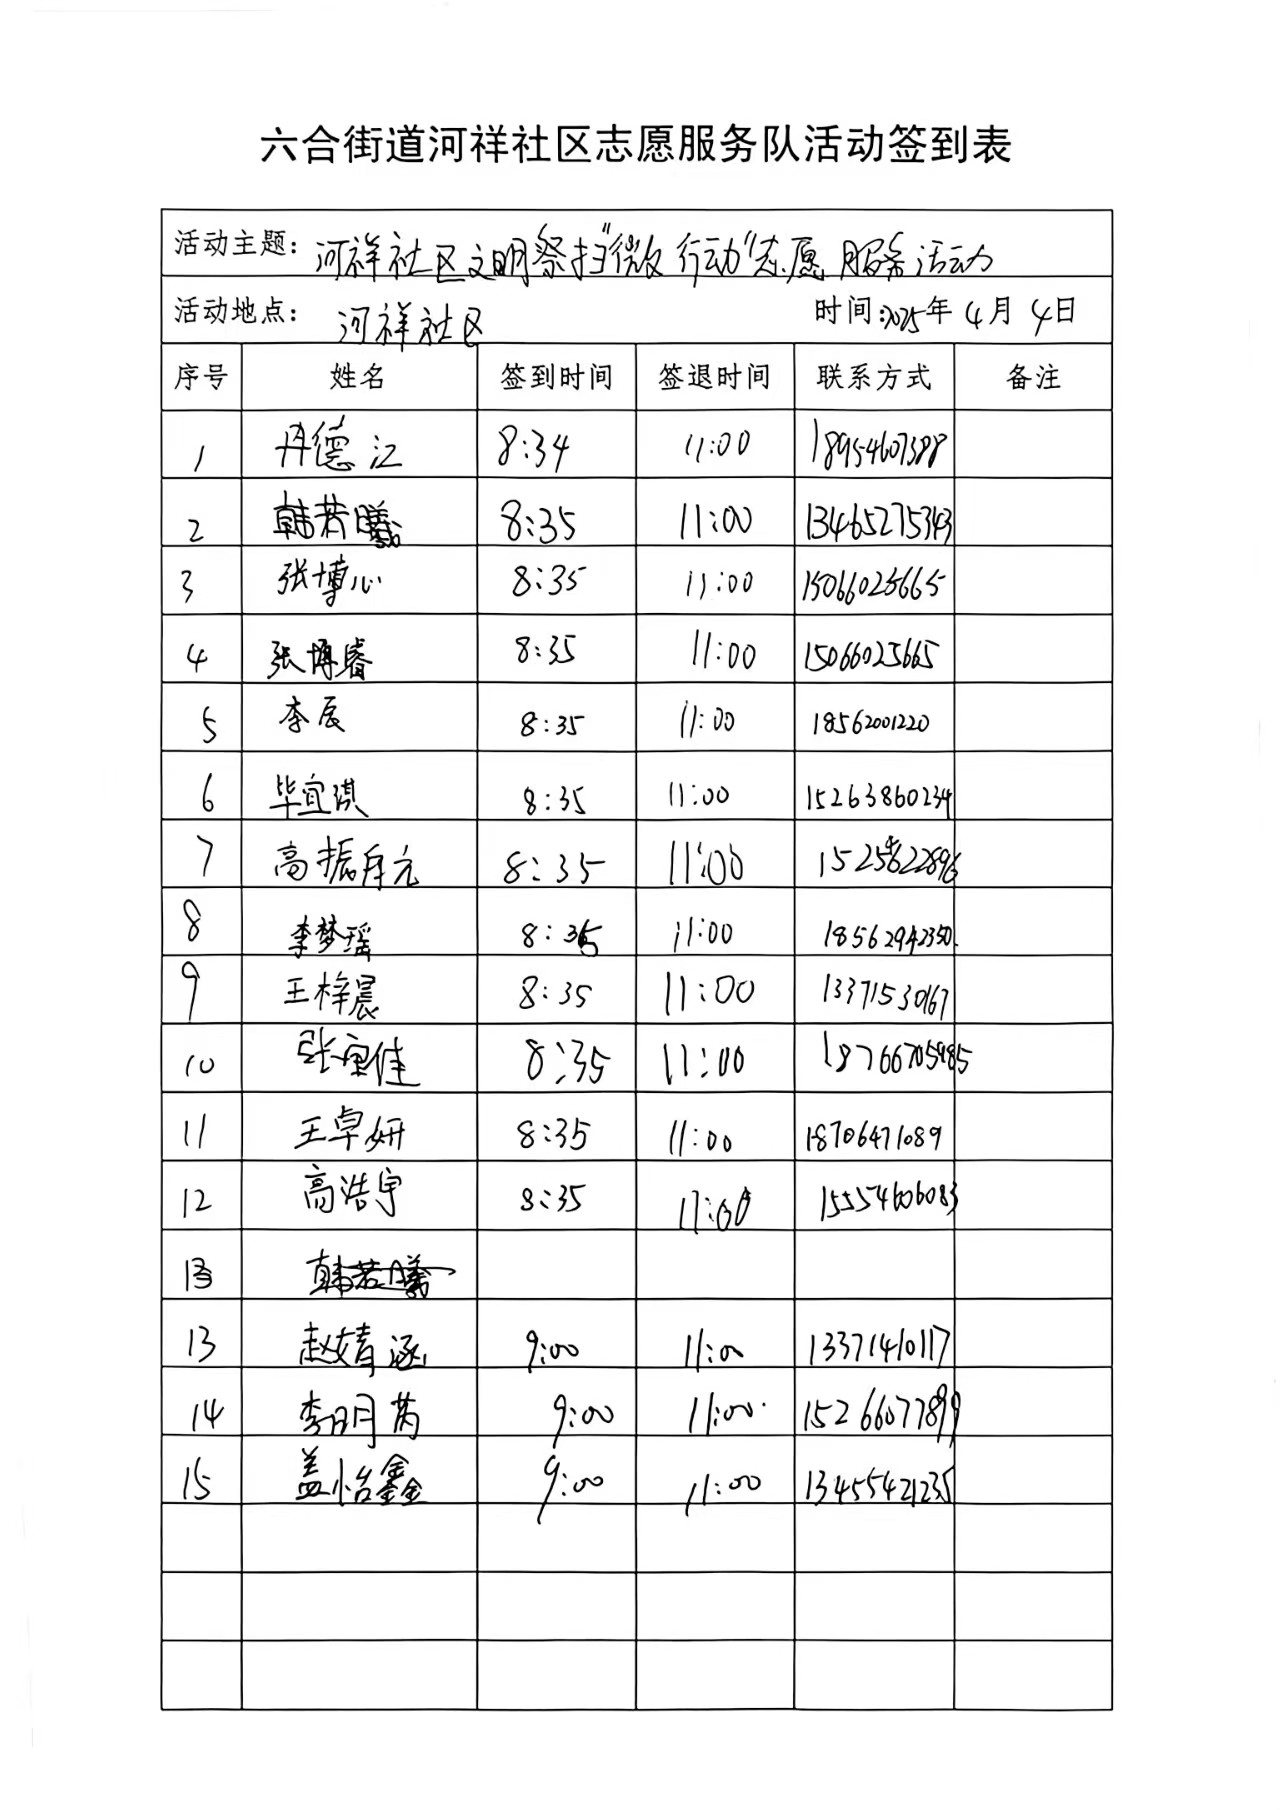 六合街道河祥社区志愿服务队活动签到表
活动主题: 河祥社区文明祭扫"微行动"志愿服务活动
活动地点: 河祥社区 时间:2025年 4月 4日
序号 姓名 签到时间 签退时间 联系方式 备注
1 丹德江 8:34 11:00 18954607388
2 韩若曦 8:35 11:00 13465275343
3 张博心 8:35 11:00 15066025665
4 张博睿 8:35 11:00 15066025665
5 李辰 8:35 11:00 18562001220
6 毕宜淇 8:35 11:00 15263860234
7 高振 元 8:35 11:00
8 李梦瑶 8:35 11:00 18562942350
9 王梓晨 8:35 11:00 13371530167
10 张 佳 8:35 11:00 18766705985
11 王卓妍 8:35 11:00 18706471089
12 高浩宇 8:35 11:00 15554606083
13 韩若曦
13 赵婧涵 9:00 11:00 13371410117
14 李明芮 9:00 11:00 15266077899
15 盖怡鑫 9:00 11:00 13455421235